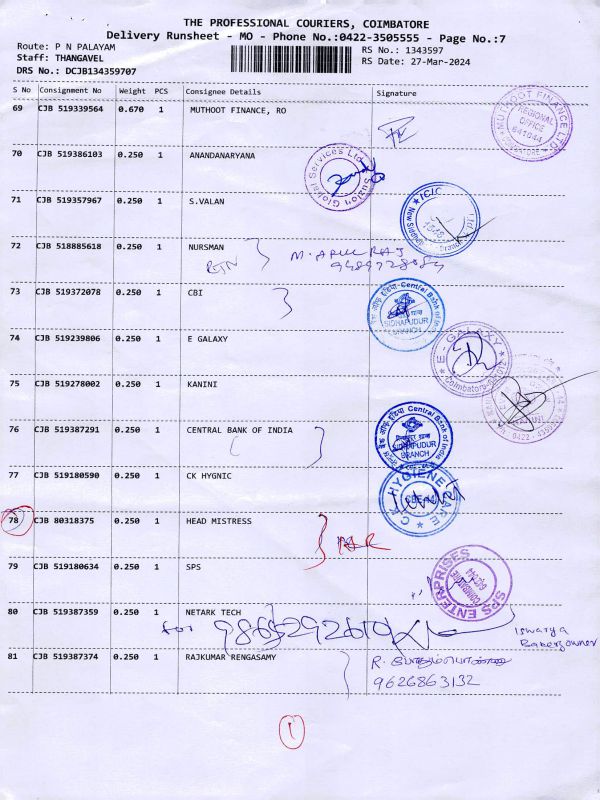 THE PROFESSIONAL COURIERS, COIMBATORE
Delivery Runsheet - MO - Phone No.:0422-3505555 - Page No.:7
Route: P N PALAYAM
RS No.: 1343597
Staff: THANGAVEL
RS Date: 27-Mar-2024
DRS No.: DCJB134359707
S No Consignment No Weight PCS Consignee Details Signature
69 CJB 519339564 0.670 1 MUTHOOT FINANCE, RO
MUTHOOT FINANCE LTD
REGIONAL
OFFICE
641044
70 CJB 519386103 0.250 1 ANANDANARYANA
Suzlon Global Services Ltd
71 CJB 519357967 0.250 1 S.VALAN
ICIC
72 CJB 518885618 0.250 1 NURSMAN
RTN
M. ARUL RAJ
73 CJB 519372078 0.250 1 CBI
Central Bank of India
SIDHAPUDUR
BRANCH
74 CJB 519239806 0.250 1 E GALAXY
E-GALAXY
Coimbatore
75 CJB 519278002 0.250 1 KANINI
76 CJB 519387291 0.250 1 CENTRAL BANK OF INDIA
Central Bank of India
SIDHAPUDUR
BRANCH
77 CJB 519180590 0.250 1 CK HYGNIC
C K HYGIENE CARE
78 CJB 80318375 0.250 1 HEAD MISTRESS
79 CJB 519180634 0.250 1 SPS
SPS ENTERPRISES
COIMBATORE
80 CJB 519387359 0.250 1 NETARK TECH
for
Iswarya
81 CJB 519387374 0.250 1 RAJKUMAR RENGASAMY
9626863132
1